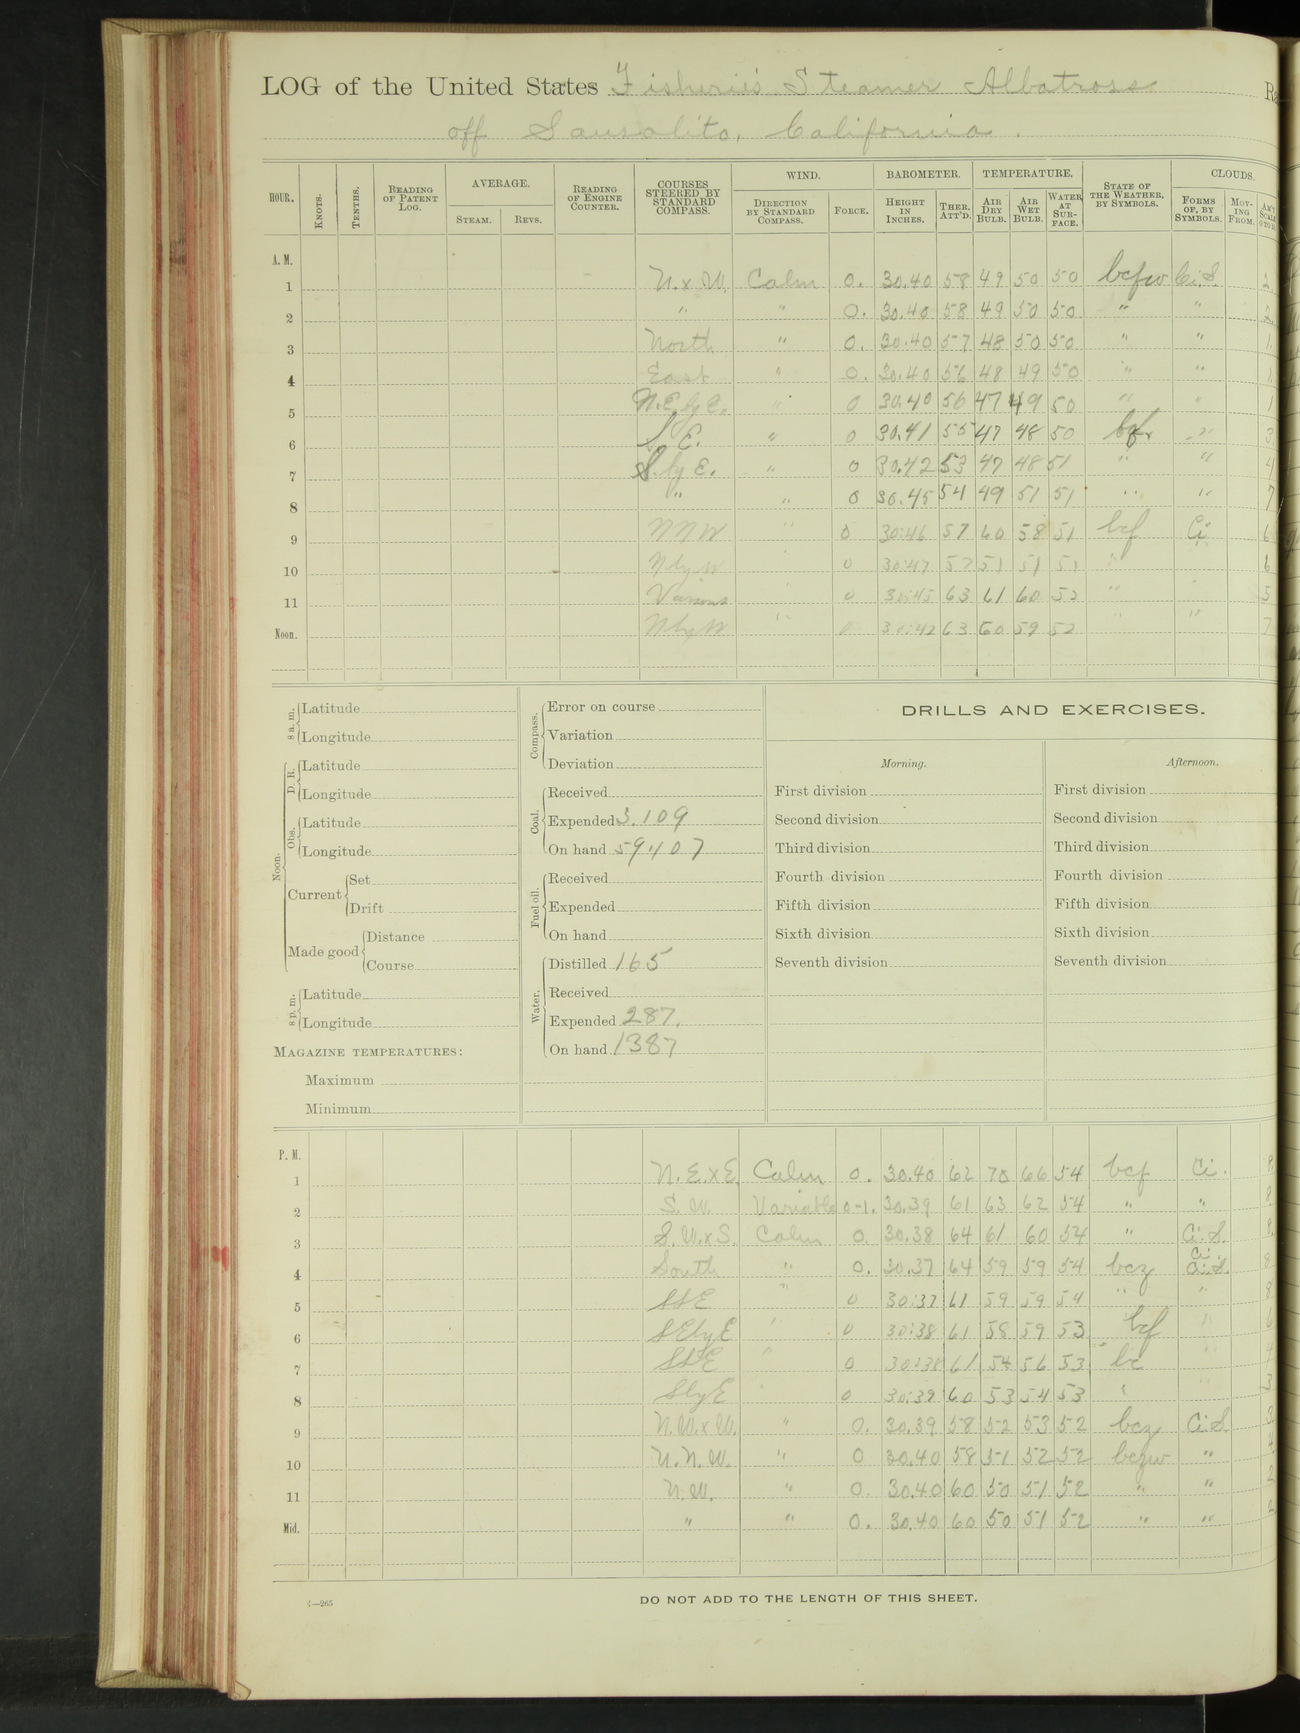 LOG of the United States Fisheries Steamer Albatross Ra
off Sausalito, California.
HOUR. KNOTS. TENTHS. READING OF PATENT LOG. AVERAGE. STEAM. REVS. READING OF ENGINE COUNTER. COURSES STEERED BY STANDARD COMPASS. WIND. DIRECTION BY STANDARD COMPASS. FORCE. BAROMETER. HEIGHT IN INCHES. THER. ATT'D. TEMPERATURE. AIR DRY BULB. AIR WET BULB. WATER AT SURFACE. STATE OF THE WEATHER, BY SYMBOLS. CLOUDS. FORMS OF, BY SYMBOLS. MOVING FROM.
A. M.
1 N. x W. Calm 0. 30.40 58 49 50 50 bcfw Ci.S. 2
2 " " 0. 30.40 58 49 50 50 " " 2
3 North " 0. 30.40 57 48 50 50 " " 1
4 East " 0. 30.40 56 48 49 50 " " 1
5 N.E. by E. " 0 30.40 56 47 49 50 " " 1
6 S. E. " 0 30.41 55 47 48 50 " 3
7 S. by E. " 0 30.42 53 47 48 51 " " 4
8 " " 0 30.45 54 49 51 51 " " 7
9 NNW " 0 30:46 57 60 58 51 bcf Ci 6
10 N by W 0 30:47 57 51 51 51 " 6
11 Various " 0 30:45 63 61 60 52 " 5
Noon. N by W " 0 30:42 63 60 59 52 " " 7
8 a. m. Latitude
Longitude
Noon. D. R. Latitude
Longitude
Obs. Latitude
Longitude
Current Set
Drift
Made good Distance
Course
8 p. m. Latitude
Longitude
MAGAZINE TEMPERATURES:
Maximum
Minimum
Compass. Error on course
Variation
Deviation
Coal. Received
Expended 3.109
On hand 59407
Fuel oil. Received
Expended
On hand
Water. Distilled 165
Received
Expended 287.
On hand 1387
DRILLS AND EXERCISES.
Morning.
First division
Second division
Third division
Fourth division
Fifth division
Sixth division
Seventh division
Afternoon.
First division
Second division
Third division
Fourth division
Fifth division
Sixth division
Seventh division
P. M.
1 N. E. x E. Calm 0. 30.40 62 70 66 54 bcf Ci. 8
2 S. W. Variable 0-1. 30.39 61 63 62 54 " " 8
3 S. W. x S. Calm 0. 30.38 64 61 60 54 " Ci. S. 8
4 South " 0. 30.37 64 59 59 54 bcz Ci. Ci.S. 8
5 SSE " 0 30:37 61 59 59 54 " " 8
6 SE by E " 0 30:38 61 58 59 53 bcf " 6
7 SSE " 0 30:38 61 54 56 53 bc " 4
8 S by E 0 30:39 60 53 54 53 " 3
9 N. W. x W. " 0. 30.39 58 52 53 52 bcz Ci.S. 3
10 N. N. W. " 0 30.40 58 51 52 52 bczw " 4
11 N. W. " 0. 30.40 60 50 51 52 " " 2
Mid. " " 0. 30.40 60 50 51 52 " " 2
DO NOT ADD TO THE LENGTH OF THIS SHEET.